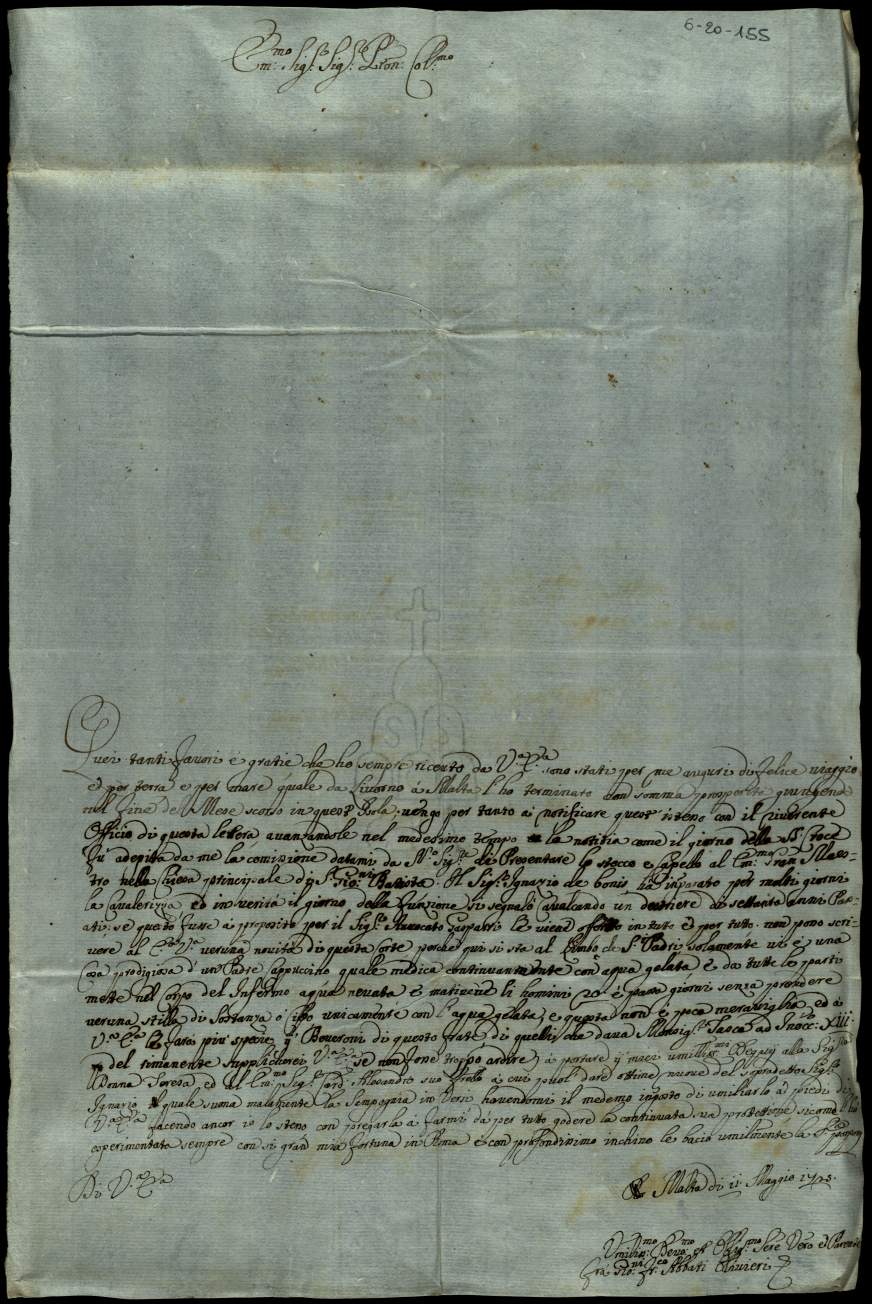 6-20-155
Em:mo Sig:r Sig:r Pron: Col:mo
Quei tanti favori è gratie che ho sempre riceuto da V.a E.za sono stati per me auguri di felice viaggio
è per terra è per mare quale da Livorno à Malta l'ho terminato con somma prosperità giungendo
nel fine del Mese scorso in quest' Isola; vengo per tanto à notificare quest' isteso con il riverente
Officio di questa lettera avanzandole nel medesimo tempo la notitia come il giorno della S.ta Croce
fu adepita da me la comisione datami da N.ro Sig.re de Presentare lo stocco e Capello al Em.mo Gran Maes-
tro nella Chiesa principale di S. Gio:ni Batista. Il Sig.r Ignazio de bonis ha inparato per molti giorni
la Cavalerizza ed in verità il giorno della funzione si segnalò cavalcando un destriere di settanta anni Pas-
ati; se questo fusse à proposito per il Sig.r Avvocato Gasparri le viene offerto in tuto è per tutto. non poso scri-
vere al E.za V.a veruna novità di questa Corte perche qui si sta al Limbo de S.ti Padri, solamente vi è una
Cosa prodigiosa d' un Padre Cappuccino quale medica continuamente con aqua gelata, è da tutte le parti
mette nel Corpo del Infermo aqua nevata è matiene li homini 20 è passa giorni senza prendere
veruna stilla di Sostanza ò cibo unicamente con l' aqua gelata, e questa non è poca meraviglia, ed à
V.a E.za le farà più specie q.i Beveroni di questo frate di quelli che dava Monsig.r Sasco ad Inoc.zo XIII.
del rimanente supplicherei V.a E.za se non fose troppo ardire, à portare i miei umilissi:mi Ossequij alla Sig.ra
Donna Teresa, ed al Em.mo Sig.r Card. Alesandro suo Frello à cui puol' dare ottime nuove del sopradetto Sig.r
Ignazio il quale suona malamente la Sempogna in Versi havendomi il medemo inposto di umiliarlo à piedi di
V.a E.za facendo ancor io lo steso con pregarla à farmi da per tutto godere la continuata sua protettione sicome l'ho
esperimentata sempre con sì gran mia fortuna in Roma è con profondissimo inchino le bacio umilmente la
Di V.a E.za
Malta di 11 Maggio 1725.
Umiliss:mo Devo:mo et Oblig.mo Ser.e Vero è Parente
fra Gio:ni fr.co Abbati Olivieri